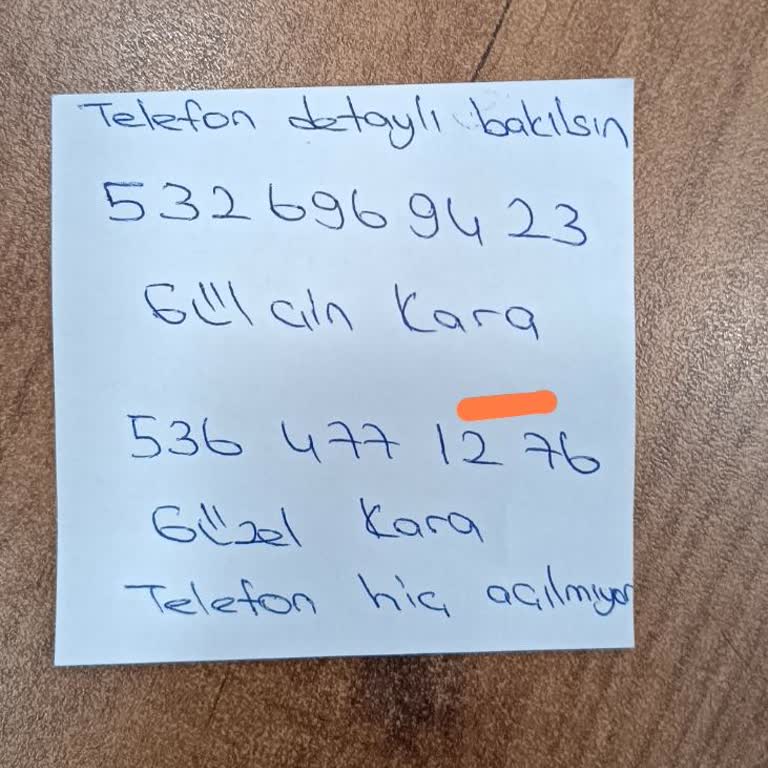 Telefon detaylı bakılsın
532 696 94 23
Gülçin Kara
536 477 12 76
Güzel Kara
Telefon hiç açılmıyor